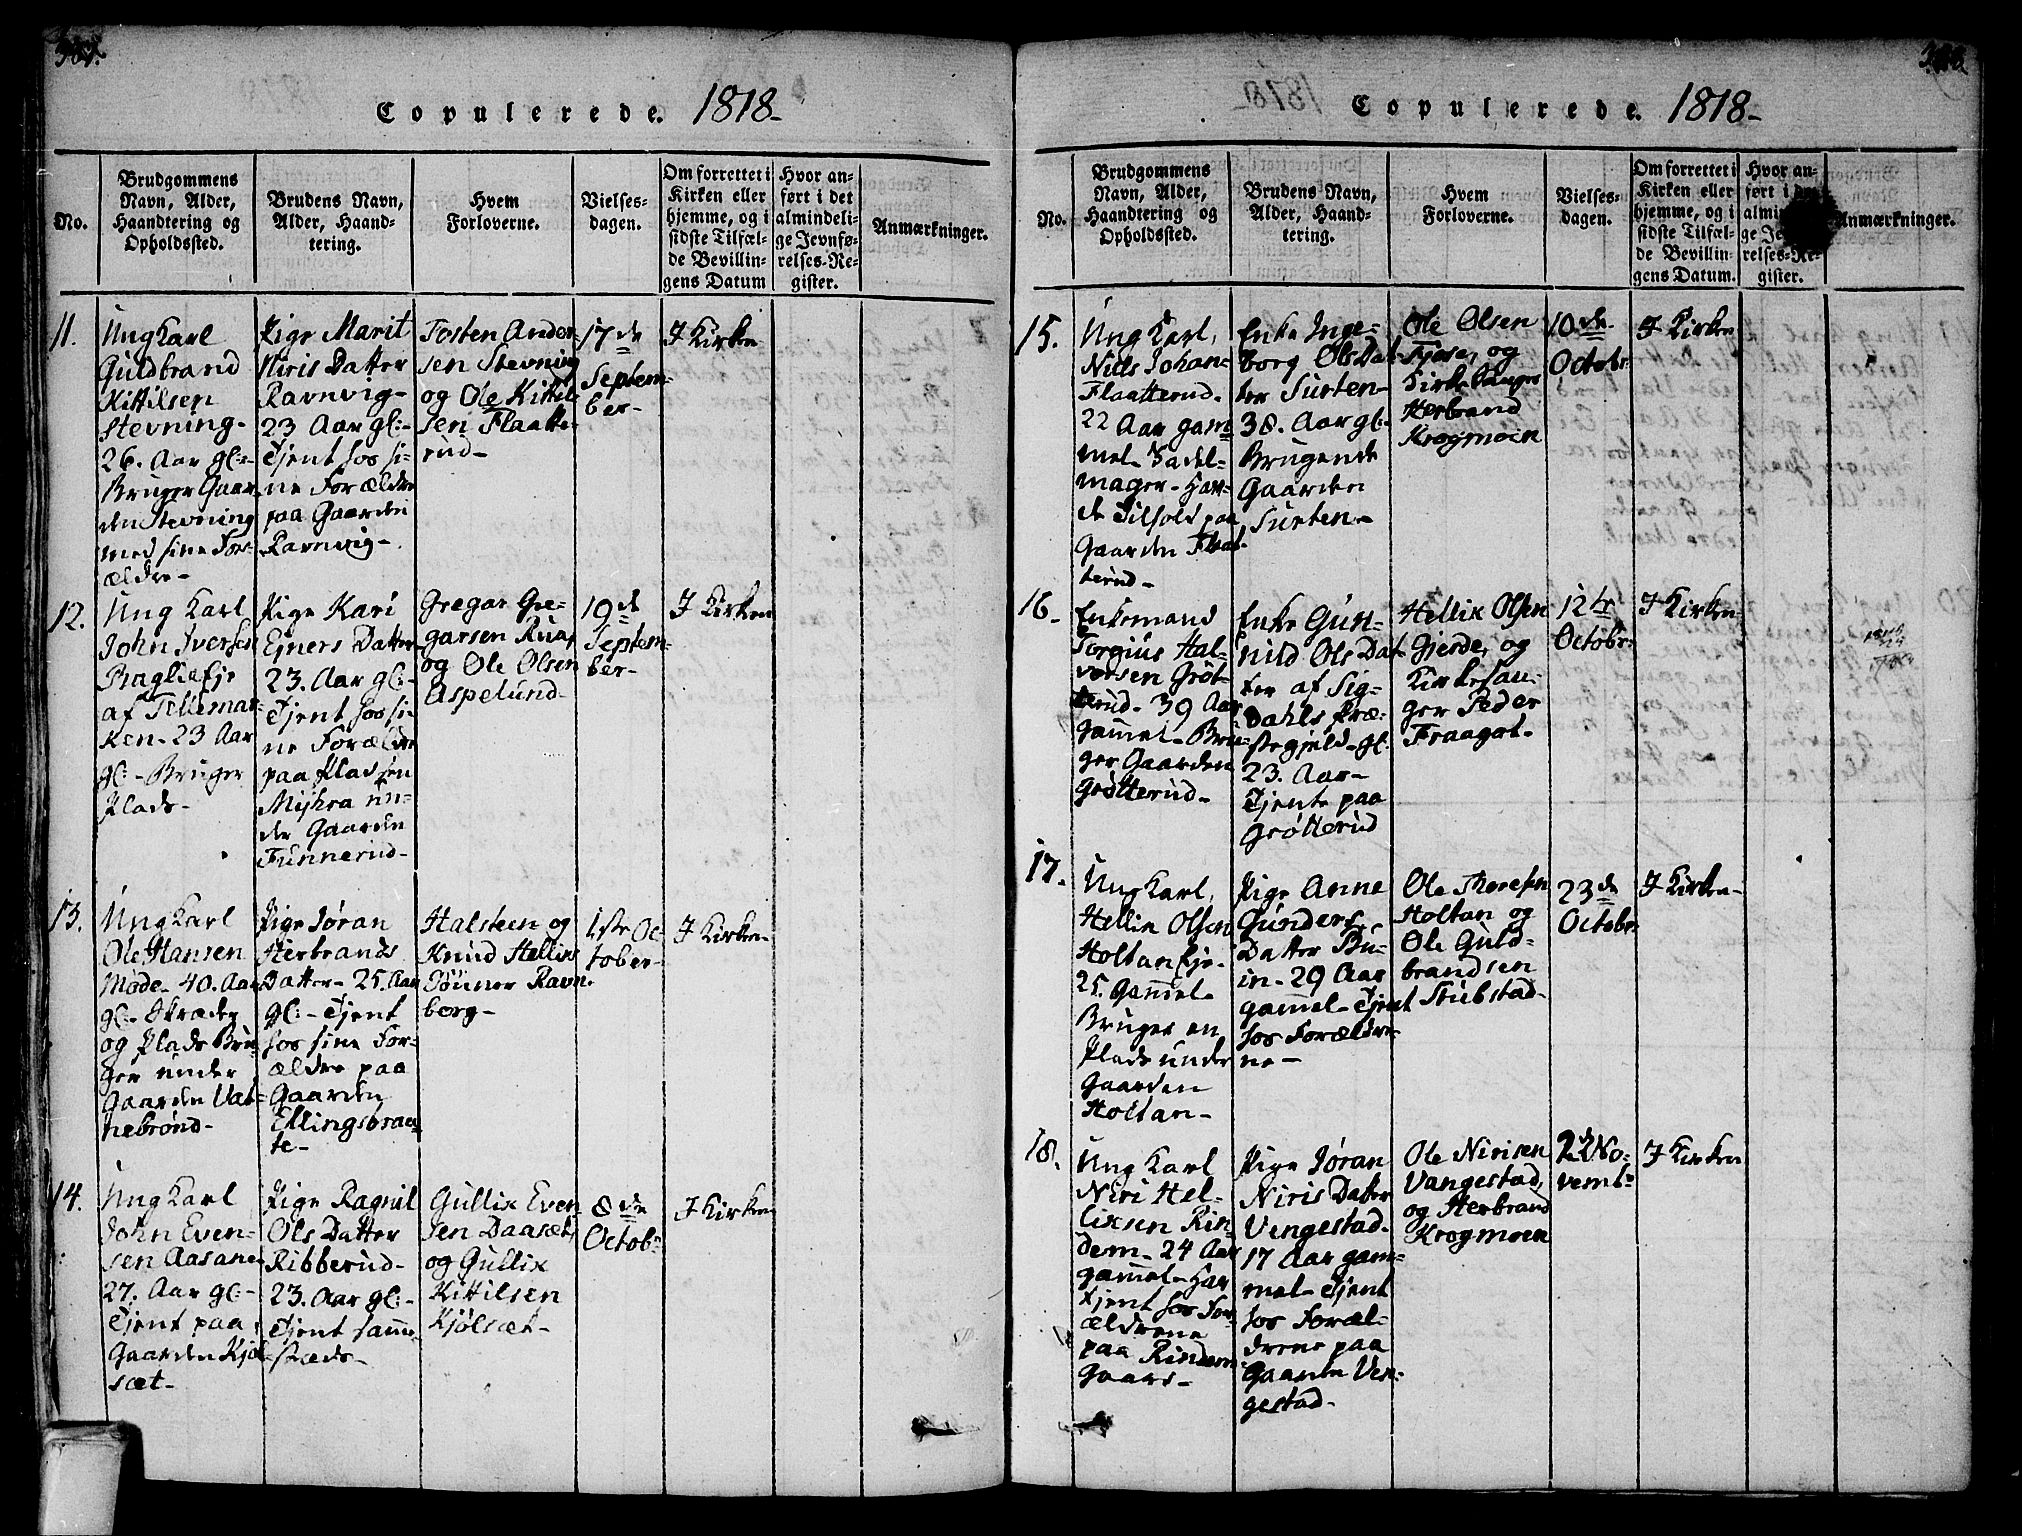 Copulerede. 1818-
No.
Brudgommens
Navn, Alder,
Haandtering og
Opholdssted.
Brudens Navn,
Alder, Haand-
tering.
Hvem
Forloverne.
Vielses-
dagen.
Om forrettet i
Kirken eller
hjemme, og i
sidste Tilfæl-
de Bevillin-
gens Datum
Hvor an-
ført i det
almindeli-
ge Jevnfø-
relses-Re-
gister.
Anmærkninger.
11.
Ung Karl
Guldbrand
Kittilsen
Stevning-
26. Aar gl:-
Bruger Gaar-
den Stevning
med sine For-
ældre-
Pige Marit
Niris Datter
Ravnvig-
23 Aar gl:-
Tjent hos si-
ne Forældre
paa Gaarden
Ravnvig-
Tosten Ander
sen Stevning
og Ole Kittil
sen Flaatte-
rud-
17de
Septem-
ber-
I Kirken
12.
Ung Karl
John Iversen
af Tellemar-
ken- 23 Aar
gl:- Bruger
Plads-
Pige Kari
Ejners Datter
23. Aar gl:-
Tjent hos si-
ne Forældre
paa Pladsen
Myhra un-
der Gaarden
Funnerud-
Gregar Gre-
garsen Rua,
og Ole Olsen
Aspelund-
19de
Septem-
ber-
I Kirken
13.
Ung Karl
Ole Hansen
Mode- 40. Aar
gl:- Skræder
og Plads Bru-
ger under
Gaarden Vat-
nebrønd-
Pige Jøran
Herbrands
Datter- 25. Aar
gl:- Tjent
hos sine For-
ældre paa
Gaarden
Ellingsbraa-
te-
Halsteen og
Knud Hellix
Sönner Ravn-
borg-
1ste Oc-
tober-
I Kirken-
14.
Ung Karl
John Even-
sen Aasane-
27. Aar gl:-
Tjent paa
Gaarden Kjøl-
sæt-
Pige Ragnil
Ols Datter
Ribberud-
23. Aar gl:-
Tjent samme-
stæds-
Gullix Even
sen Daasæt,
og Gullix
Kittilsen
Kjölsæt-
8de
Octobr
I Kirken
Copulerede. 1818-
No.
Brudgommens
Navn, Alder,
Haandtering og
Opholdssted.
Brudens Navn,
Alder, Haand-
tering.
Hvem
Forloverne.
Vielses-
dagen.
Om forrettet i
Kirken eller
hjemme, og i
sidste Tilfæl-
de Bevillin-
gens Datum.
Hvor an-
ført i
almind
ge
relses-Re-
gister.
Anmærkninger.
15.
Ung Karl,
Niels Johan-
Flaatterud-
22 Aar gam
mel- Sadel-
mager- Har-
de Tilhold paa
Gaarden Flaat-
terud-
Enke Inge-
borg Ols Dat
ter Surten-
38. Aar gl:-
Brugende
Gaarden
Surten-
Ole Olsen
Fjøse, og
Kirkesanger
Herbrand
Krogmoen
10de
Octobr:
I Kirken
16.
Enkemand
Torgius Hal-
vorsen Gröt-
terud- 39 Aar
gammel- Bru-
ger Gaarden
Grötterud-
Enke Gun-
nild Ols Dat
ter af Sig-
dahls Præ-
stegjeld- gl:
23. Aar-
Tjente paa
Grötterud
Hellix Olsen
Gjerde, og
Kirkesan-
ger Peder
Fraagot-
12te
Octobr:
I Kirken-
17.
Ung Karl,
Hellix Olsen
Holtan Eje-
25. Gammel-
Bruger en
Plads under
Gaarden
Holtan-
Pige Anne
Gunders
Datter Bu-
in- 29 Aar
gammel- Tjent
hos Forældre-
ne-
Ole Thoresen
Holtan og
Ole Guld-
brandsen
Stubstad-
23de
Octobr:
I Kirken-
18.
Ung Karl
Niri Hel-
lixsen Rin-
dem- 24 Aar
gammel- Har
tjent hos For-
ældrene
paa Rindem
Gaard-
Pige Jøran
Niris Datter
Vengestad-
17 Aar gam-
mel- Tjent
hos Foræl-
drene paa
Gaarden Ven-
gestad-
Ole Nirisen
Vangestad,
og Herbrand
Krogmoen
2d No-
vembr
I Kirken